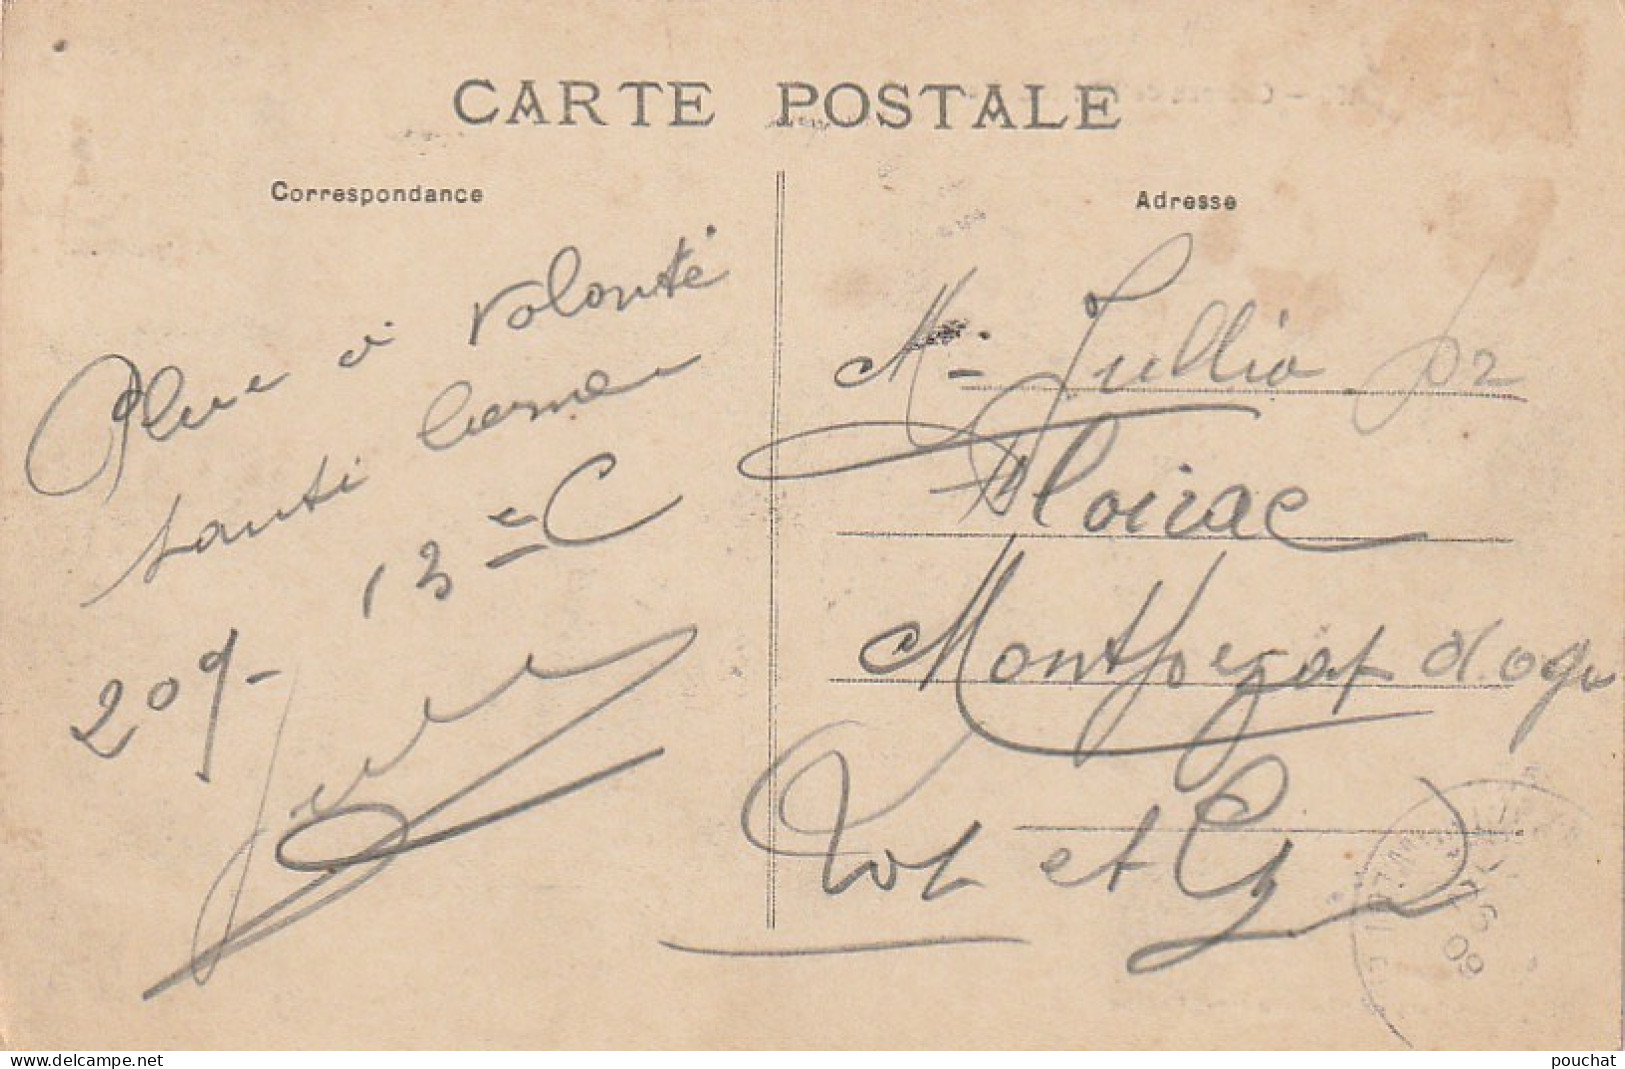 CARTE POSTALE
Correspondance
Adresse
Pluie à volonté
santé bonne
13e C
209-
M- Jullia
Floirac
Montpezat d'
Lot et G
09
delcampe.net
pouchat